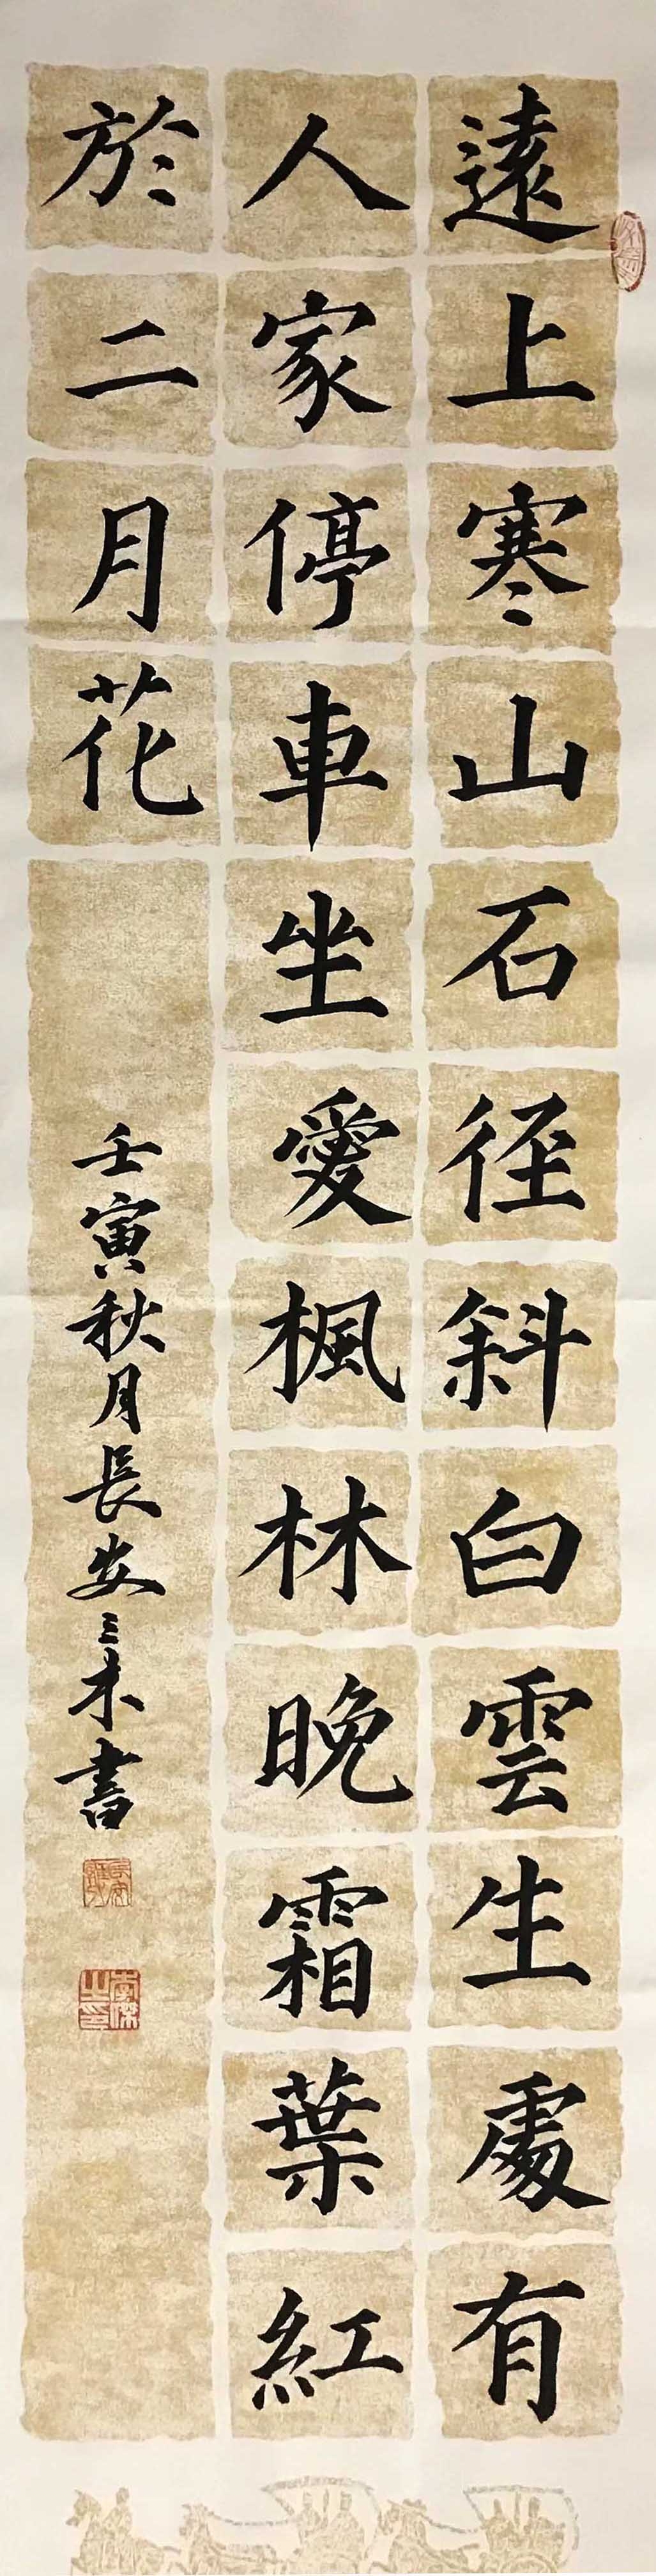 遠上寒山石径斜白雲生處有
人家停車坐愛楓林晚霜葉紅
於二月花
壬寅秋月長安三末書